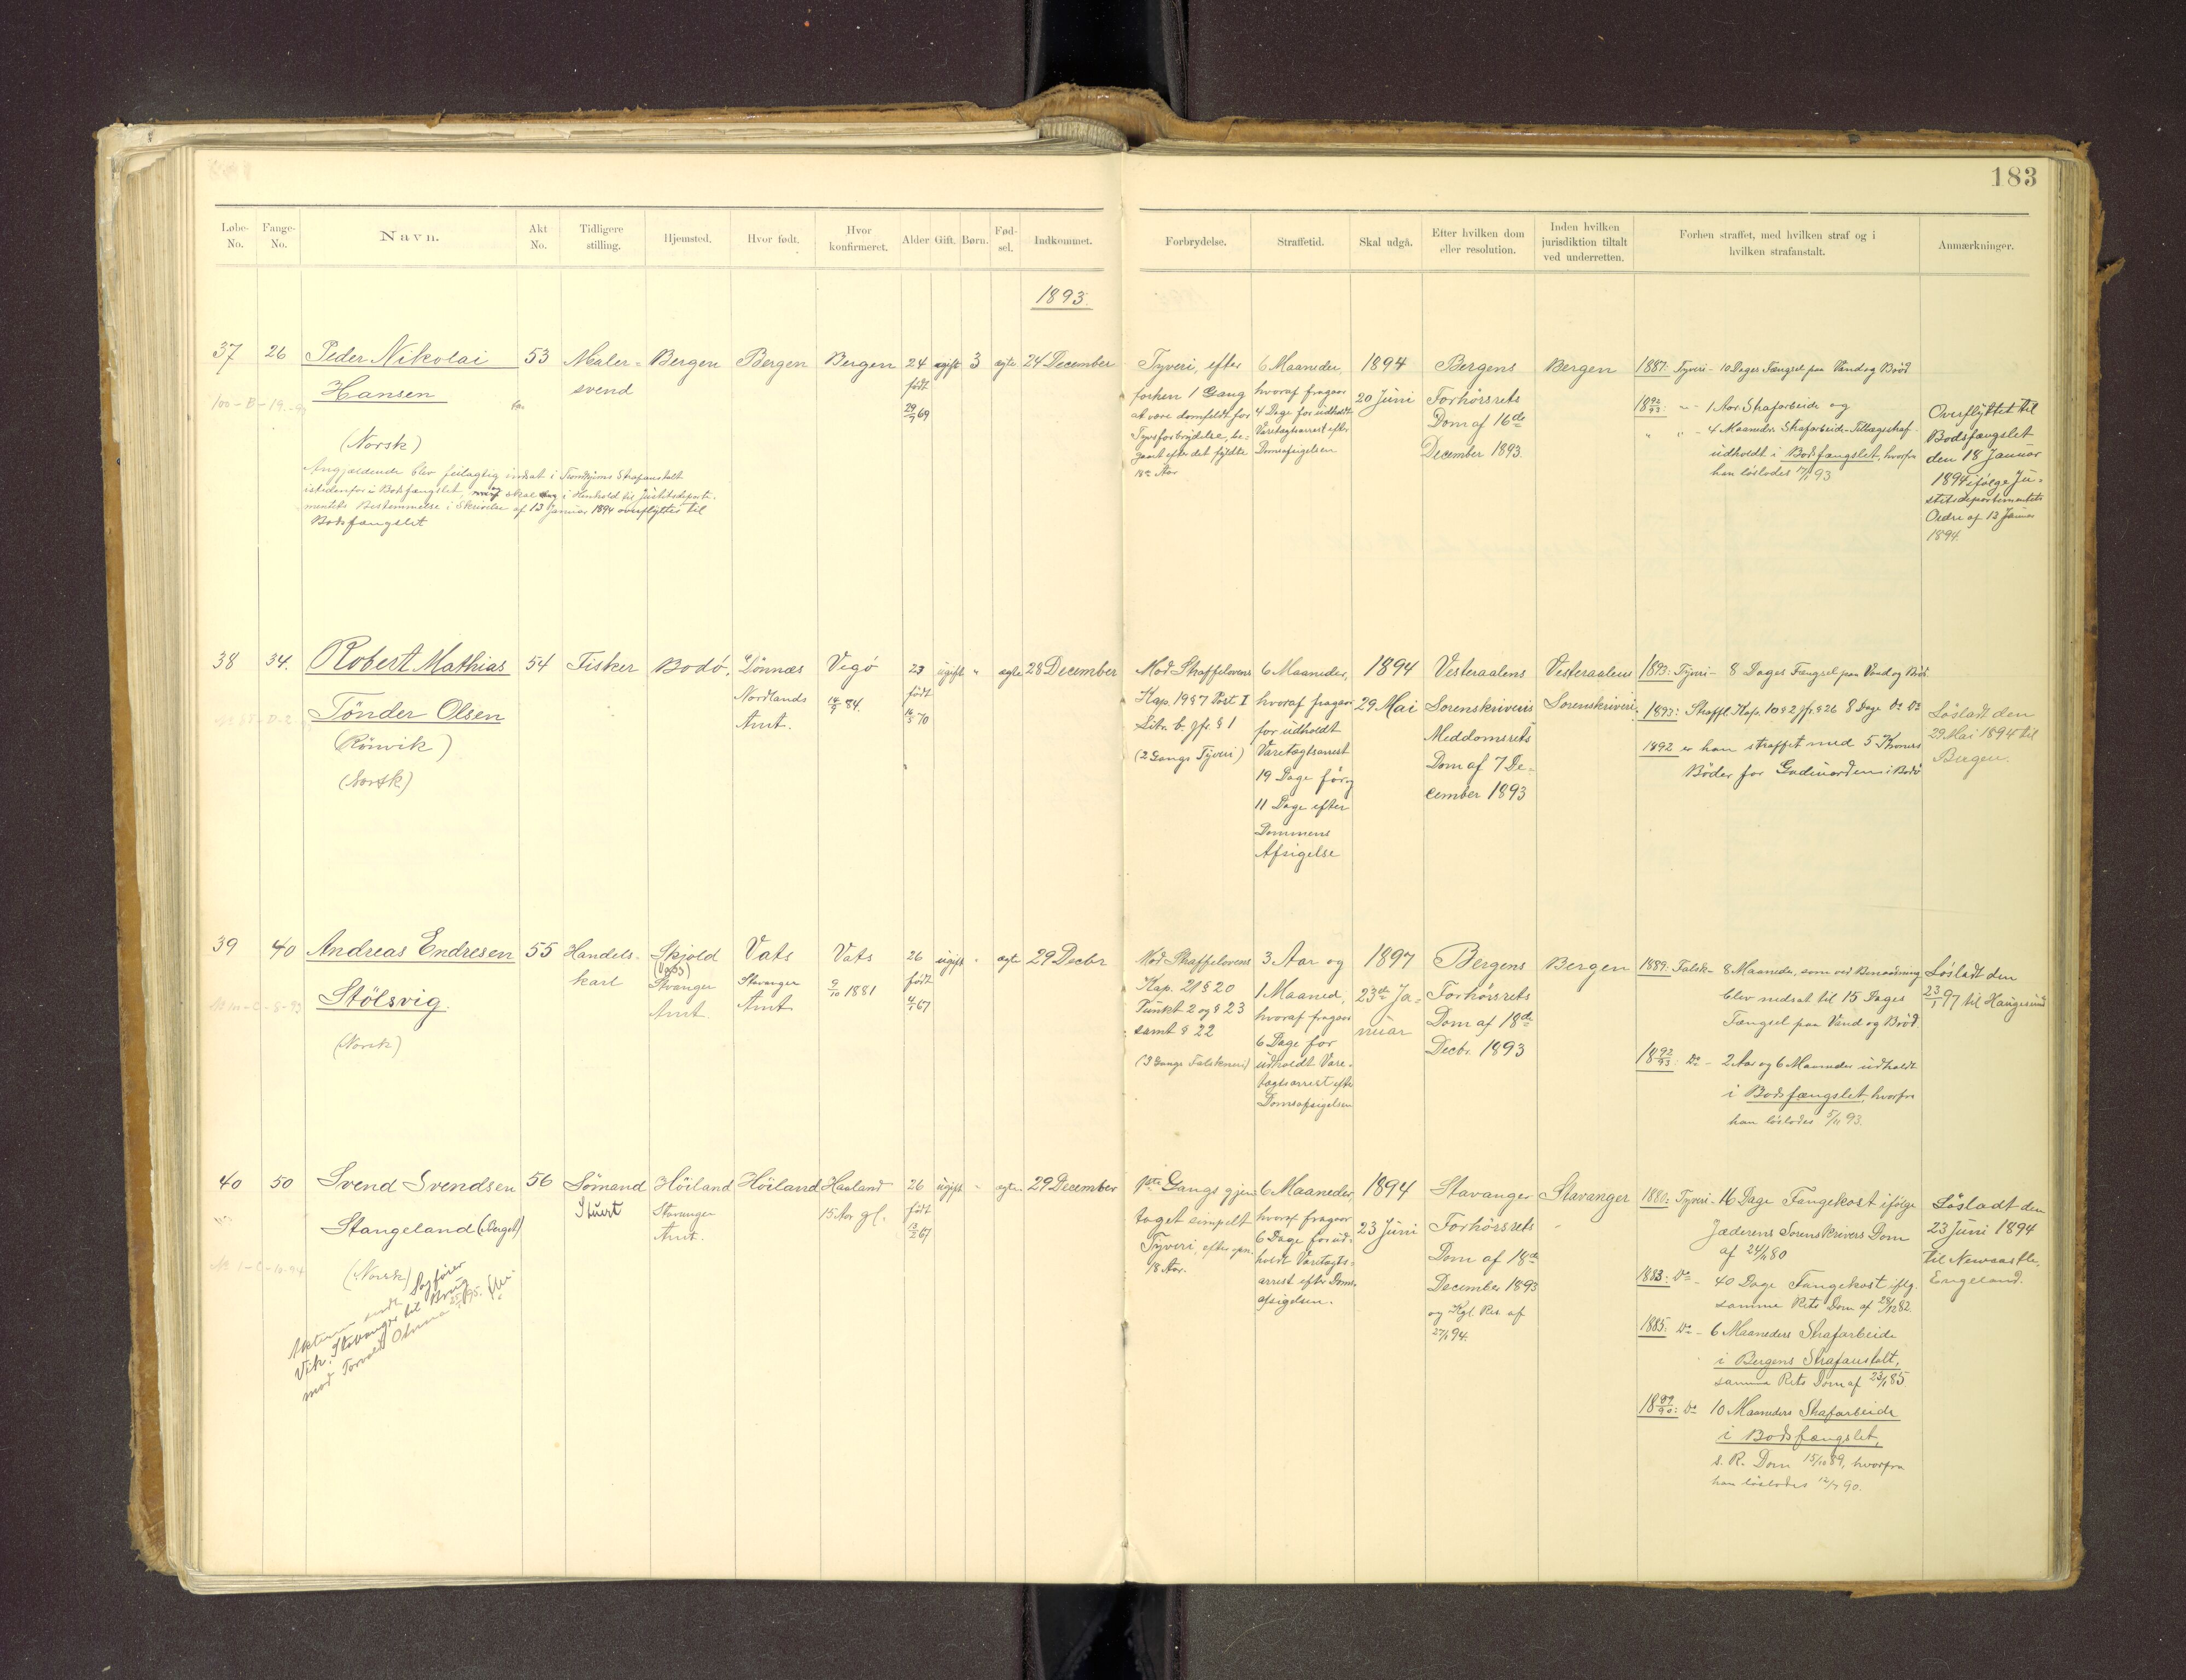 183
Løbe-No.
Fange-No.
Navn.
Akt No.
Tidligere stilling.
Hjemsted.
Hvor født.
Hvor konfirmeret.
Alder
Gift.
Børn.
Fød-sel.
Indkommet.
Forbrydelse.
Straffetid.
Skal udgå.
Efter hvilken dom eller resolution.
Inden hvilken jurisdiktion tiltalt ved underretten.
Forhen straffet, med hvilken straf og i hvilken strafanstalt.
Anmærkninger.
1893.
37
26
Peder Nikolai
Hansen
(Norsk)
Angjældende blev feilagtig indsat i Trondhjems Strafanstalt
istedenfor i Bodsfængslet, skal i Henhold til Justitsdeparte-
mentets Bestemmelse i Skrivelse af 13 Januar 1894 overflyttes til
Bodsfængslet
53
Maler-
svend
Bergen
Bergen
Bergen
24
født
29/9 69
gift
3
ægte
24 December
Tyveri, efter
forhen 1 Gang
at være domfældt for
Tyvsforbrydelse, be-
gaaet efter det fyldte
18de Aar
6 Maaneder,
hvoraf fragaar
4 Dage for udholdt
Varetægtsarrest efter
Domsafsigelsen
1894
20 Juni
Bergens
Forhørsrets
Dom af 16de
December 1893.
Bergen
1887: Tyveri - 10 Dages Fængsel paa Vand og Brød
1892/93: " - 1 Aar Strafarbeide og
" " - 4 Maaneders Strafarbeide-Tillægsstraf
udholdt i Bodsfængslet, hvorfra
han løslodes 17/11 93
Overflyttet til
Bodsfængslet
den 18 Januar
1894 ifølge Ju-
stitsdepartementets
Ordre af 13 Januar
1894.
38
34.
Robert Mathias
Tönder Olsen
(Rönvik)
(Norsk)
54
Fisker
Bodö,
Dönnæs
Nordlands
Amt.
Vegö
14/9 84.
23
født
16/5 70
ugift
"
ægte
28 December
Mod Straffelovens
Kap. 19 § 7 Post I
Litr. b. jfr. § 1
(2 Gangs Tyveri)
6 Maaneder,
hvoraf fragaar
for udholdt
Varetægtsarrest
19 Dage før og
11 Dage efter
Dommens
Afsigelse
1894
29 Mai
Vesteraalens
Sorenskriveris
Meddomsrets
Dom af 7 De-
cember 1893
Vesteraalens
Sorenskriveri
1893: Tyveri - 8 Dages Fængsel paa Vand og Brød.
1893: Straffl. Kap. 10 § 2 jfr. § 26 8 Dage Do Do
1892 er han straffet med 5 Kroners
Bøder for Gadeuorden i Bodö
Løsladt den
29 Mai 1894 til
Bergen.
39
40
Andreas Endresen
Stölsvig.
(Norsk)
55
Handels-
karl
Skjold
(Vats)
Stvanger
Amt.
Vats
Stavanger
Amt
Vats
9/10 1881
26
født
4/1 67
ugift
"
ægte
29 Decbr
Mod Straffelovens
Kap. 21 § 20
Punkt 2 og § 23
samt § 22
(3 Gangs Falskneri)
3 Aar og
1 Maaned,
hvoraf fragaar
6 Dage for
udholdt Vare-
tægtsarrest efter
Domsafsigelsen
1897
23de Ja-
nuar
Bergens
Forhørsrets
Dom af 18de
Decbr. 1893
Bergen
1889: Falsk - 8 Maaneder, som ved Benaadning
blev nedsat til 15 Dages
Fængsel paa Vand og Brød.
1892/93: Do - 2 Aar og 6 Maaneder udholdt
i Bodsfængslet, hvorfra
han løslodes 5/11 93.
Løsladt den
23/1 97 til Haugesund
40
50
Svend Svendsen
Stangeland
(Norsk)
Akterne sendt Sagfører
Vik, Stavanger til Brug
mod Torvald
56
Sömand
Stuert
Höiland
Stavanger
Amt.
Höiland
Haaland
15 Aar gl.
26
født
13/2 67
ugift
"
ægte
29 December
Gangs gjen-
taget simpelt
Tyveri, efter
18 Aar.
6 Maaneder,
hvoraf fragaar
6 Dage for ud-
holdt Varetægts-
arrest efter Doms-
afsigelsen.
1894
23 Juni
Stavanger
Forhørsrets
Dom af 18de
December 1893
og Kgl. Res. af
27/1 94.
Stavanger
1880: Tyveri - 16 Dage Fangekost ifølge
Jæderens Sorenskrivers Dom
af 24/11 80
1883: Do - 40 Dage Fangekost iflg.
samme Rets Dom af 28/12 82.
1885: Do - 6 Maaneders Strafarbeide
i Bergens Strafanstalt,
samme Rets Dom af 23/1 85
1889/90: Do 10 Maaneders Strafarbeide
i Bodsfængslet,
s. R. Dom 15/10 89, hvorfra
han løslodes 12/7 90.
Løsladt den
23 Juni 1894
til Newcastle,
Engeland.